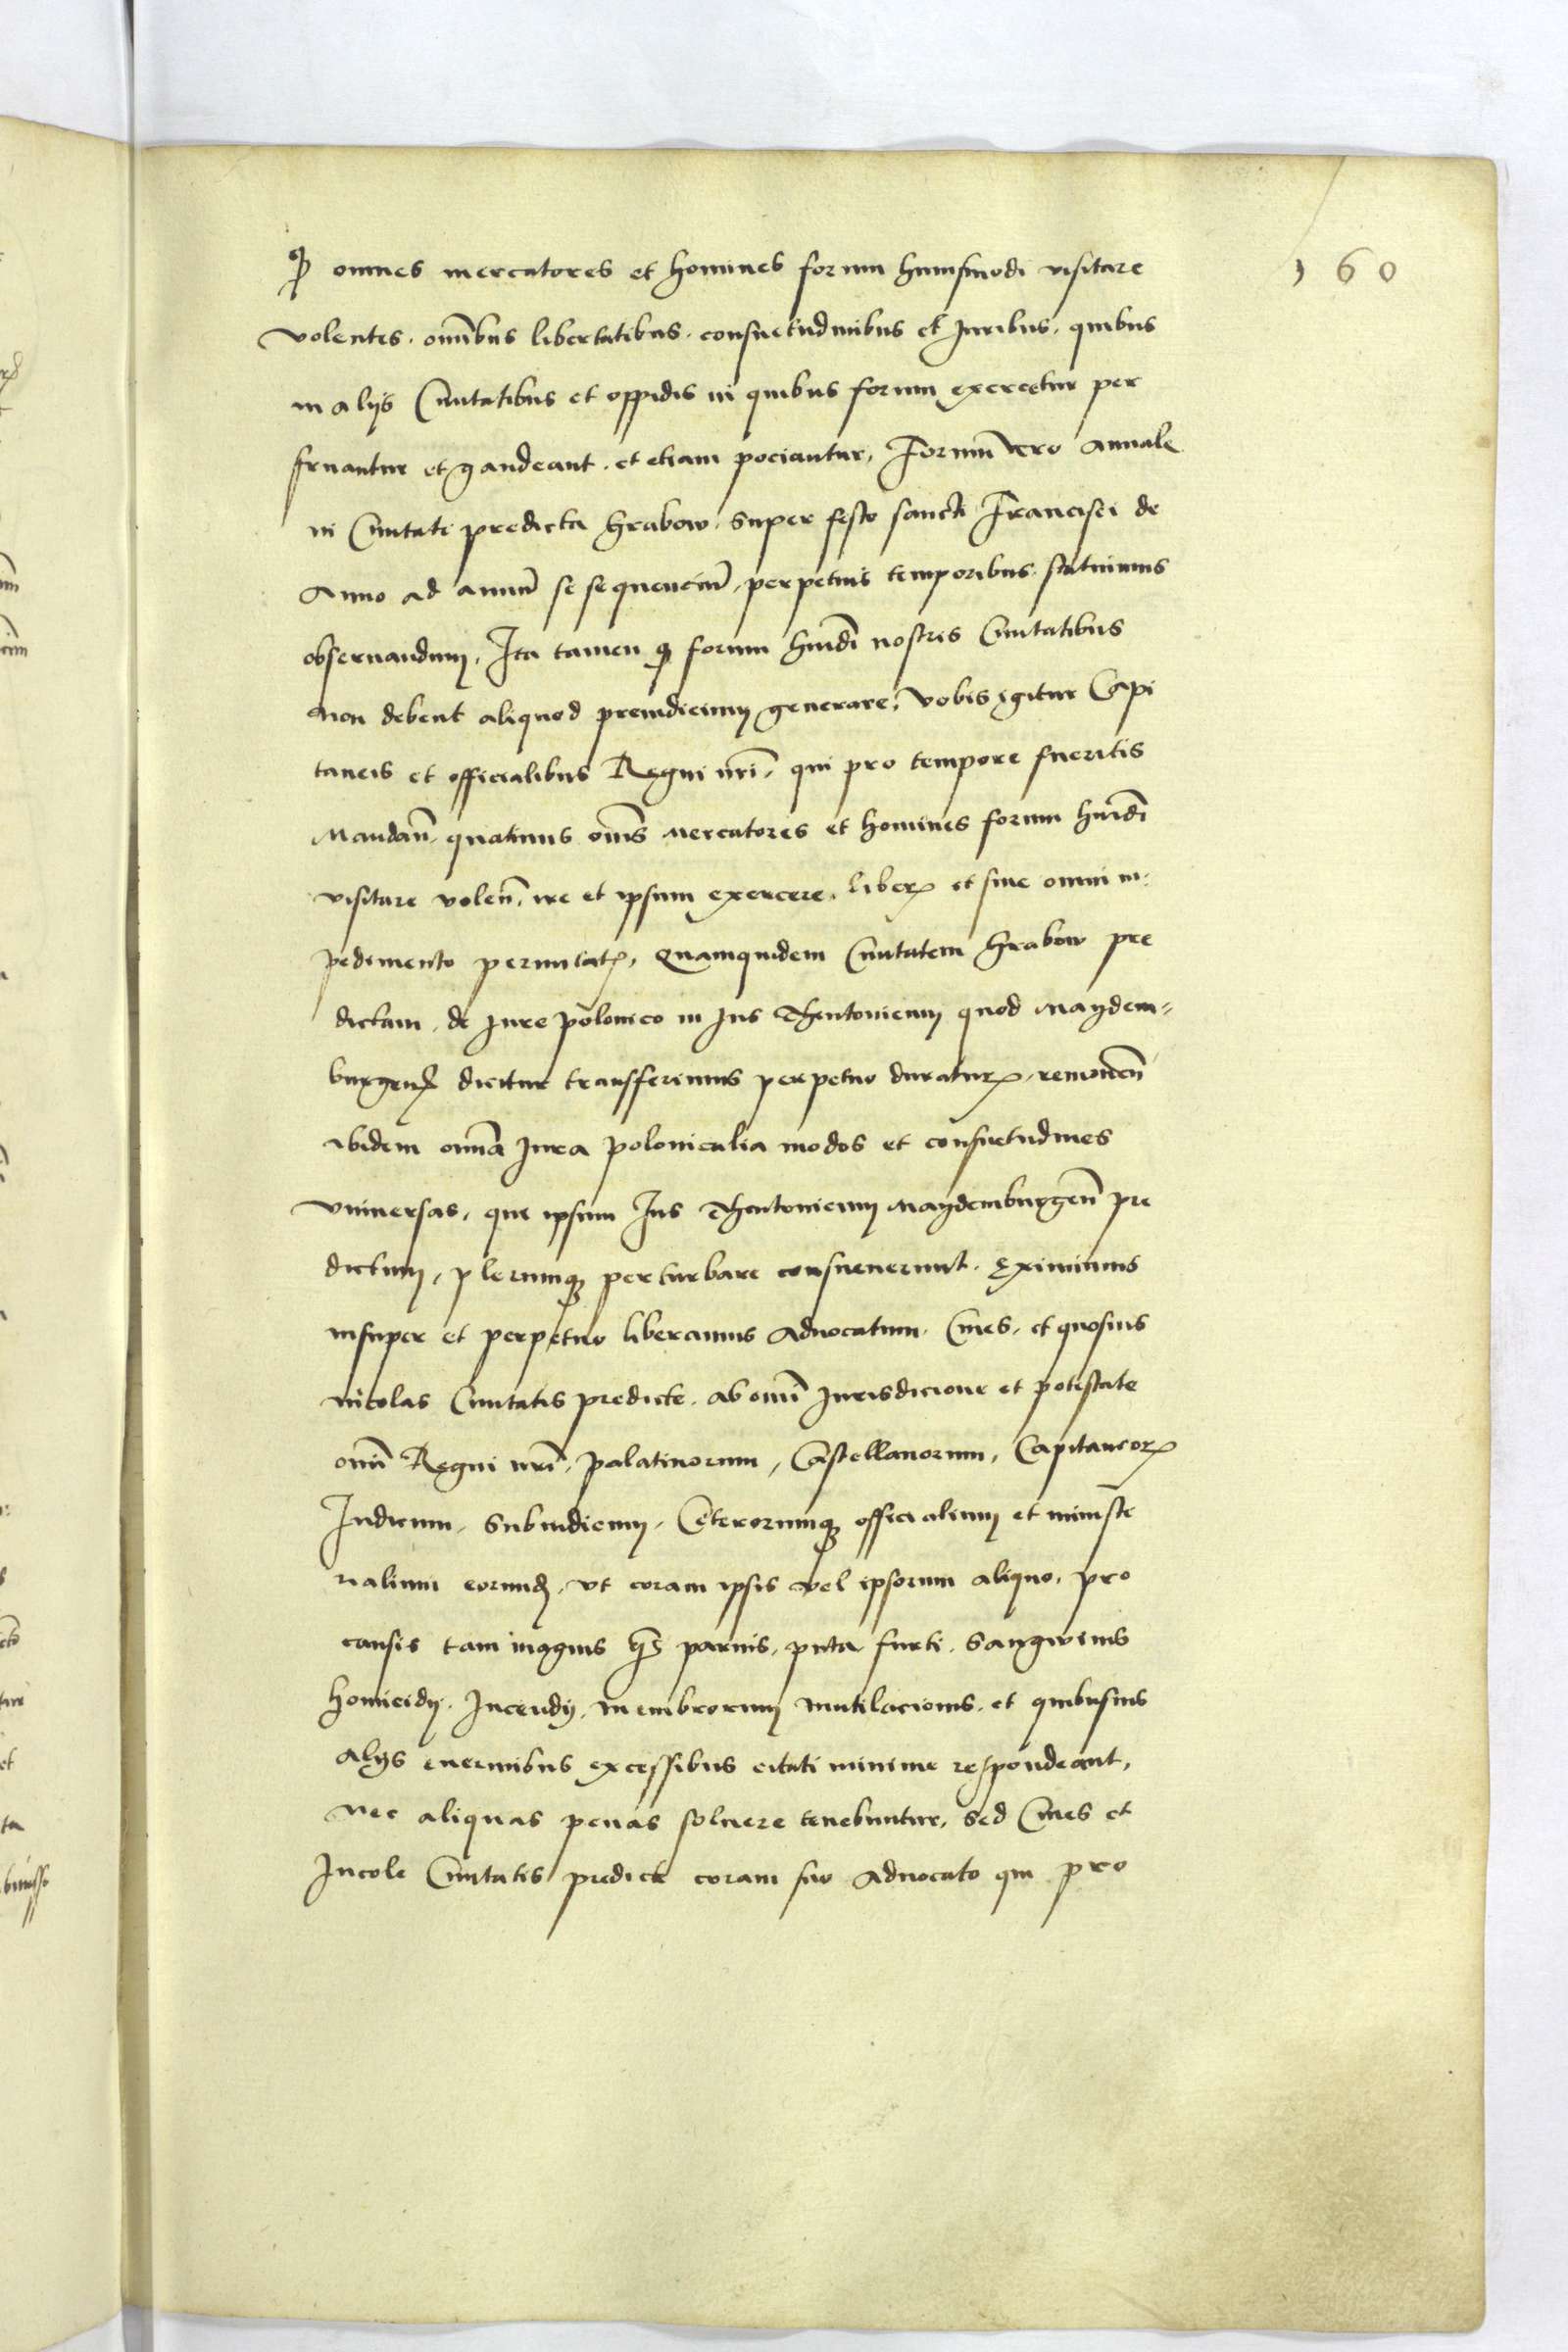 160
ꝙ omnes mercatores et homines forum huiusmodi visitare
volentes. om̄ibus libertatibus. consuetudinibus et Iuribus. quibus
in alijs Ciuitatibus et oppidis in quibus forum exercetur per
fruantur et gaudeant. et etiam pociantur, Forum̄ vero Annale
in Ciuitate predicta Grabow. super festo sancti Francisci de
Anno ad annum̄ se sequencim̄, perpetuis temporibus statuimus
obseruandum, Ita tamen ꝙ forum hmōi nostris Ciuitatibus
non debent aliquod preiudicium generare, Vobis igitur Capi
taneis et officialibus Regni nr̄i, qui pro tempore fueritis
Mandam̄, quatinus om̄s Mercatores et homines forum hmōi
visitare volen̄, ire et ipsum exercere. libere et sine omni im-
pedimento permittatꝭ, Quamquidem Ciuitatem Grabow pre
dictam, de Iure polonico in Ius Theutonicum quod Maydem-
burgenꝭ dicitur transferimus perpetuo duraturꝭ, remouen̄
ibidem om̄ia Iura polonicalia modos et consuetudines
Vniuersas, que ipsum Ius Theutonicum Maydemburgen̄ pre
dictum, plerumqꝫ perturbare consueuerunt. Eximimus
insuper et perpetuo liberamus Aduocatum. Ciues. et quosuis
incolas Ciuitatis predicte. ab om̄i Iurisdicione et potestate
om̄i Regni nr̄i, palatinorum, Castellanorum, Capitaneorꝭ
Iudicum, Subiudicum, Ceterorumqꝫ officialium et ministe
rialium eorumdꝭ, vt coram ipsis vel ipsorum aliquo, pro
causis tam magnis qꝫ paruis, puta furti. sangwinis
homicidij. Incendij. membrorum mutilacionis. et quibusuis
alijs enermibus excessibus citati minime respondeant,
nec aliquas penas soluere tenebuntur, sed Ciues et
Incole Ciuitatis predicte coram suo Aduocato qui pro